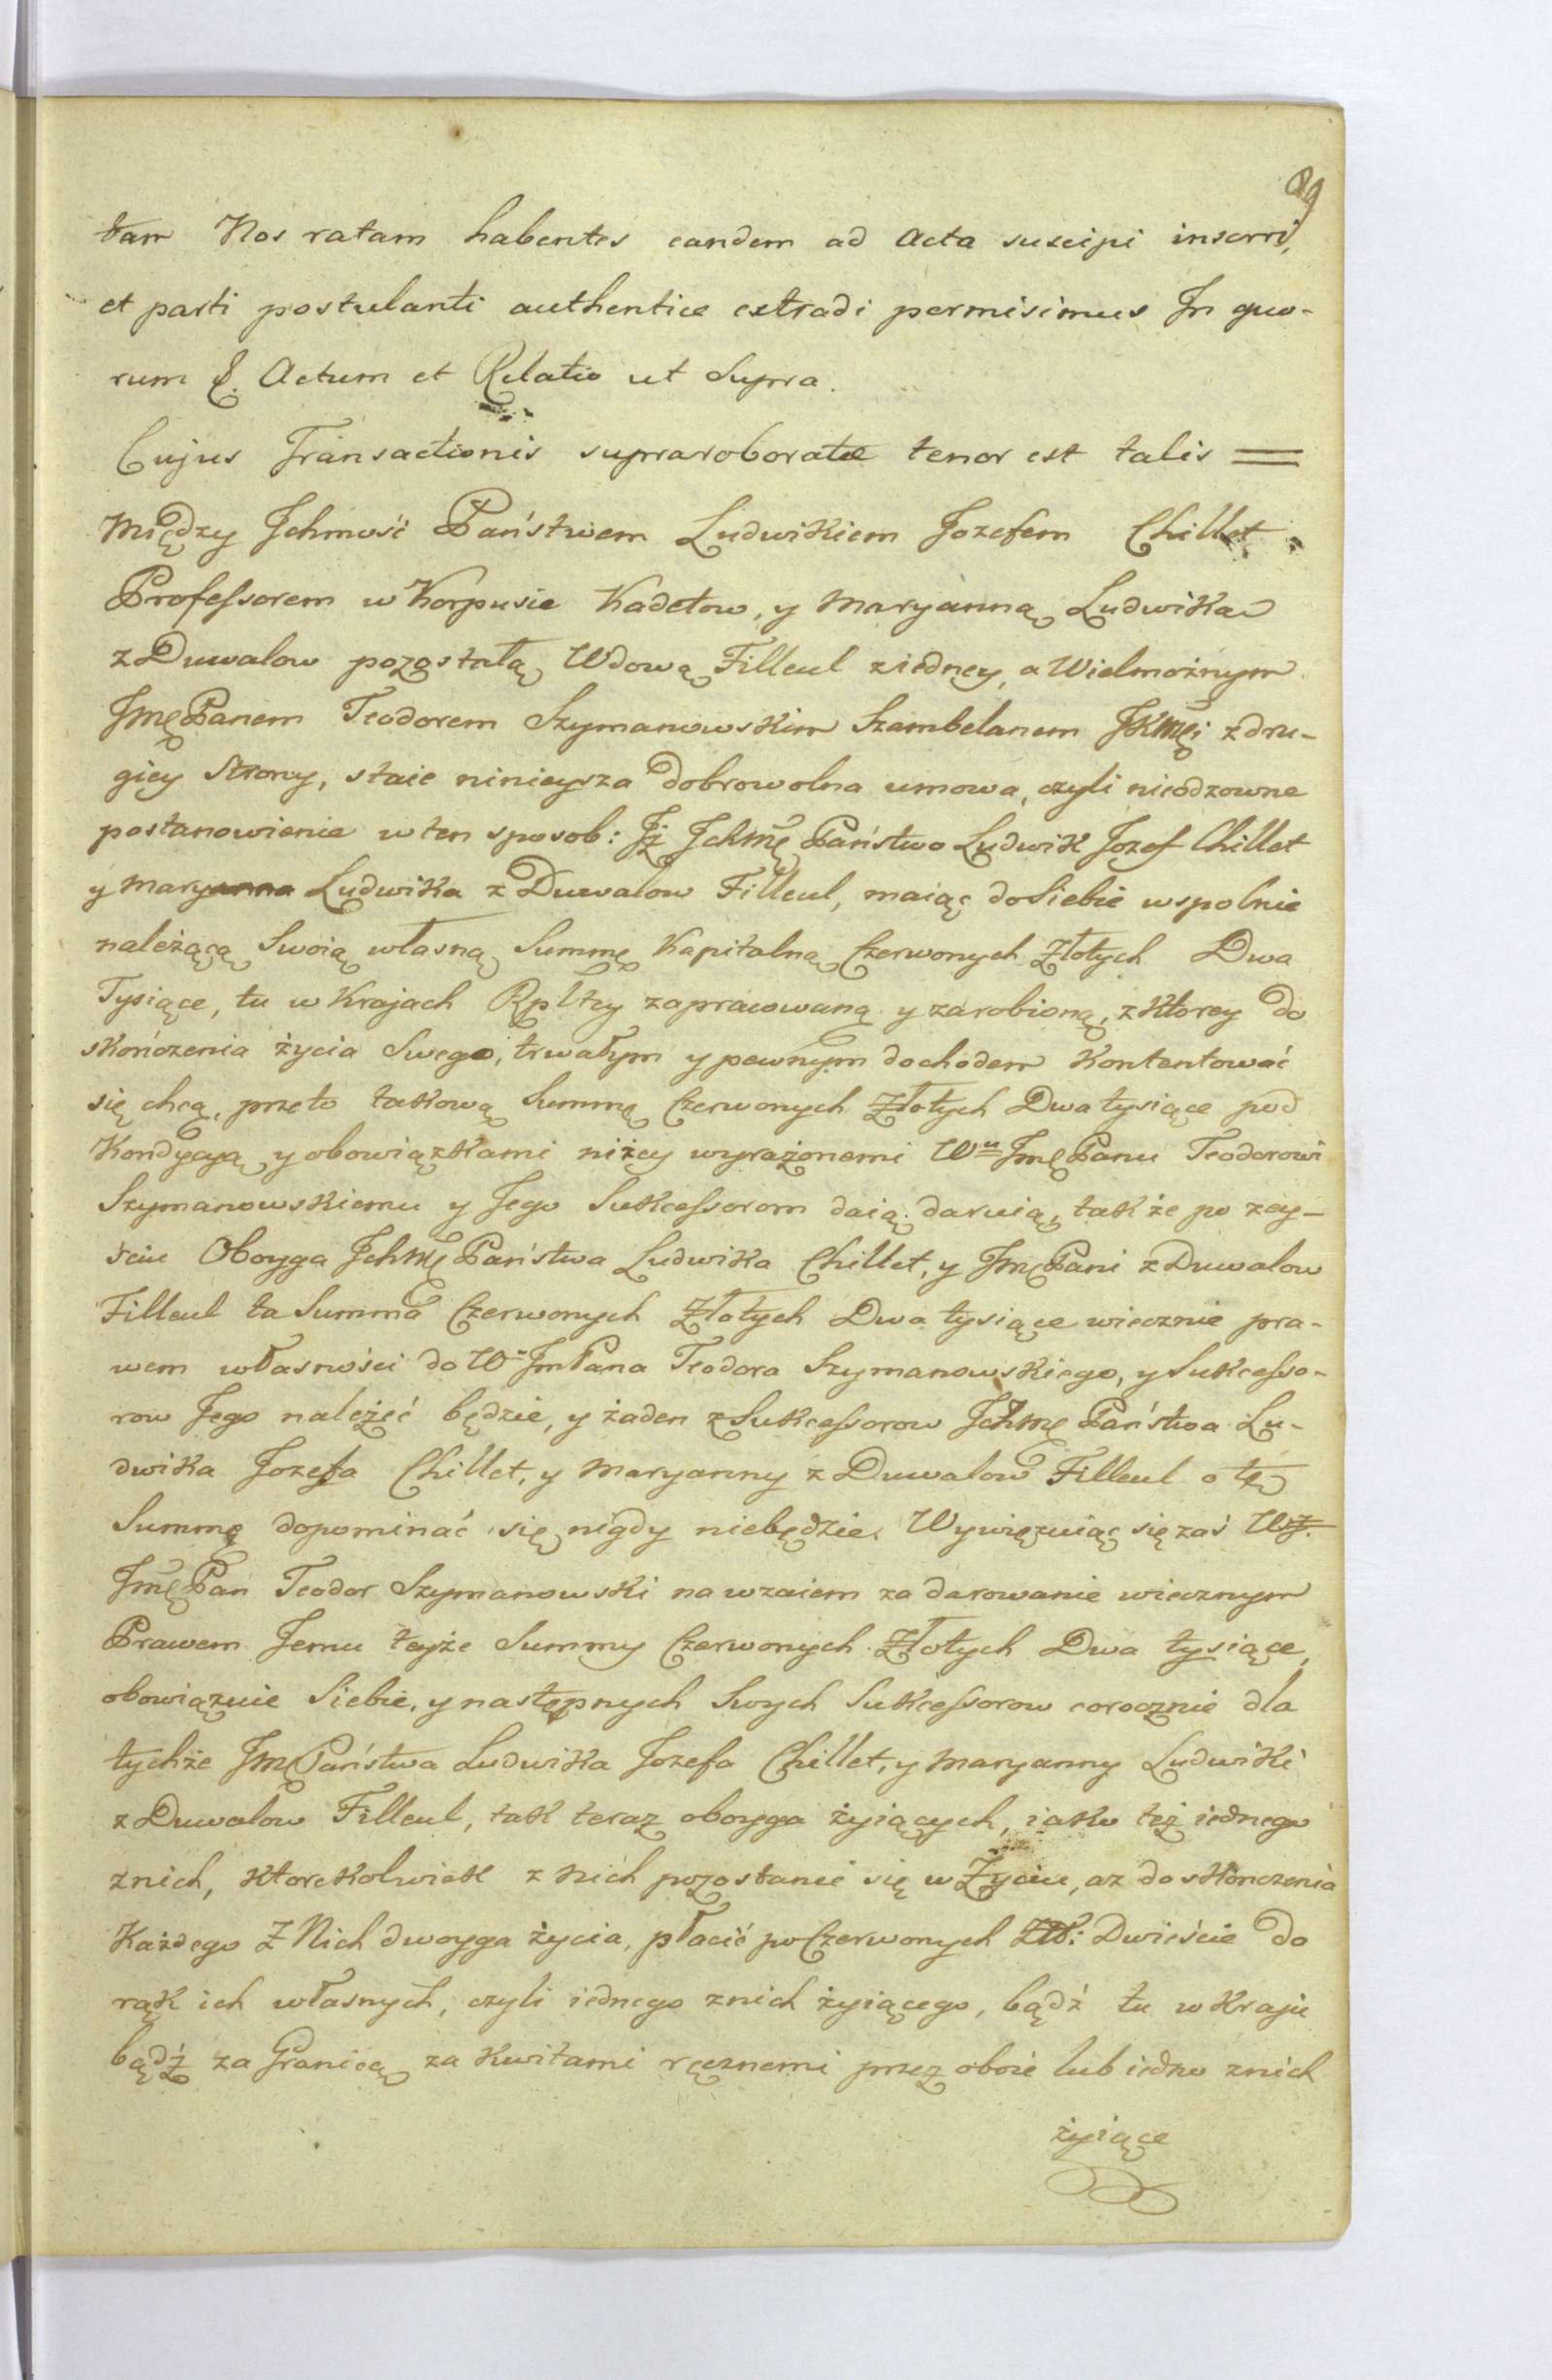 89
tam Nos ratam habentes eandem ad Acta suscipi inserri,
et parti postulanti authentice extradi permisimus In quo-
rum &. Actum et Relatio ut Supra.
Cujus Transactionis supraroboratæ tenor est talis =
Między Jchmość Państwem Ludwikiem Jozefem Chillet
Professorem w Korpusie Kadetow, y Maryanną Ludwiką
z Duwalow pozostałą Wdową Filleul ziedney, a Wielmożnym
Jmę Panem Teodorem Szymanowskim Szambelanem JKMęi z dru-
giey Strony, staie ninieysza dobrowolna umowa, czyli nieodzowne
postanowienie w ten sposob: Jż Jchmę Państwo Ludwik Jozef Chillet
y Maryanna Ludwika z Duwalow Filleul, maiąc do Siebie wspolnie
należącą Swoią własną Summę Kapitalną Czerwonych Złotych Dwa
Tysiące, tu w Krajach Rpltey zapracowaną y zarobioną, z Ktorey do
skończenia życia Swego, trwałym y pewnym dochodem Kontentować
się chcą, przeto takową Summę Czerwonych Złotych Dwa tysiące pod
Kondycyą y obowiązkami niżey wyrażonemi Wu Jmę Panu Teodorowi
Szymanowskiemu y Jego Sukcessorom daią, daruią, tak że po zey-
ściu Oboyga Jchmę Państwa Ludwika Chillet, y Jmę Pani z Duwalow
Filleul ta Summa Czerwonych Złotych Dwa tysiące wiecznie pra-
wem własności do W Jm Pana Teodora Szymanowskiego, y Sukcesso-
row Jego należeć będzie, y żaden z Sukcessorow Jchmę Państwa Lu-
dwika Jozefa Chillet, y Maryanny z Duwalow Filleul o tę
Summę dopominać się nigdy niebędzie. Wywięzuiąc się zaś Wż.
Jmę Pan Teodor Szymanowski na wzaiem za darowanie wiecznym
Prawem Jemu teyże Summy Czerwonych Złotych Dwa tysiące,
obowiązuie Siebie, y następnych Swych Sukcessorow corocznie dla
tychże Jm Państwa Ludwika Jozefa Chillet, y Maryanny Ludwiki
z Duwalow Filleul, tak teraz oboyga żyiących, iako też iednego
znich, Ktorekolwiek z nich pozostanie się w Życiu, az do skonczenia
Każdego Z Nich dwoyga życia, płacić po Czerwonych Zło: Dwieście do
rąk ich własnych, czyli iednego znich żyiącego, bądź tu w Kraju
bądź za Granicą za Kwitami ręcznemi przez oboie lub iedno znich
żyiące